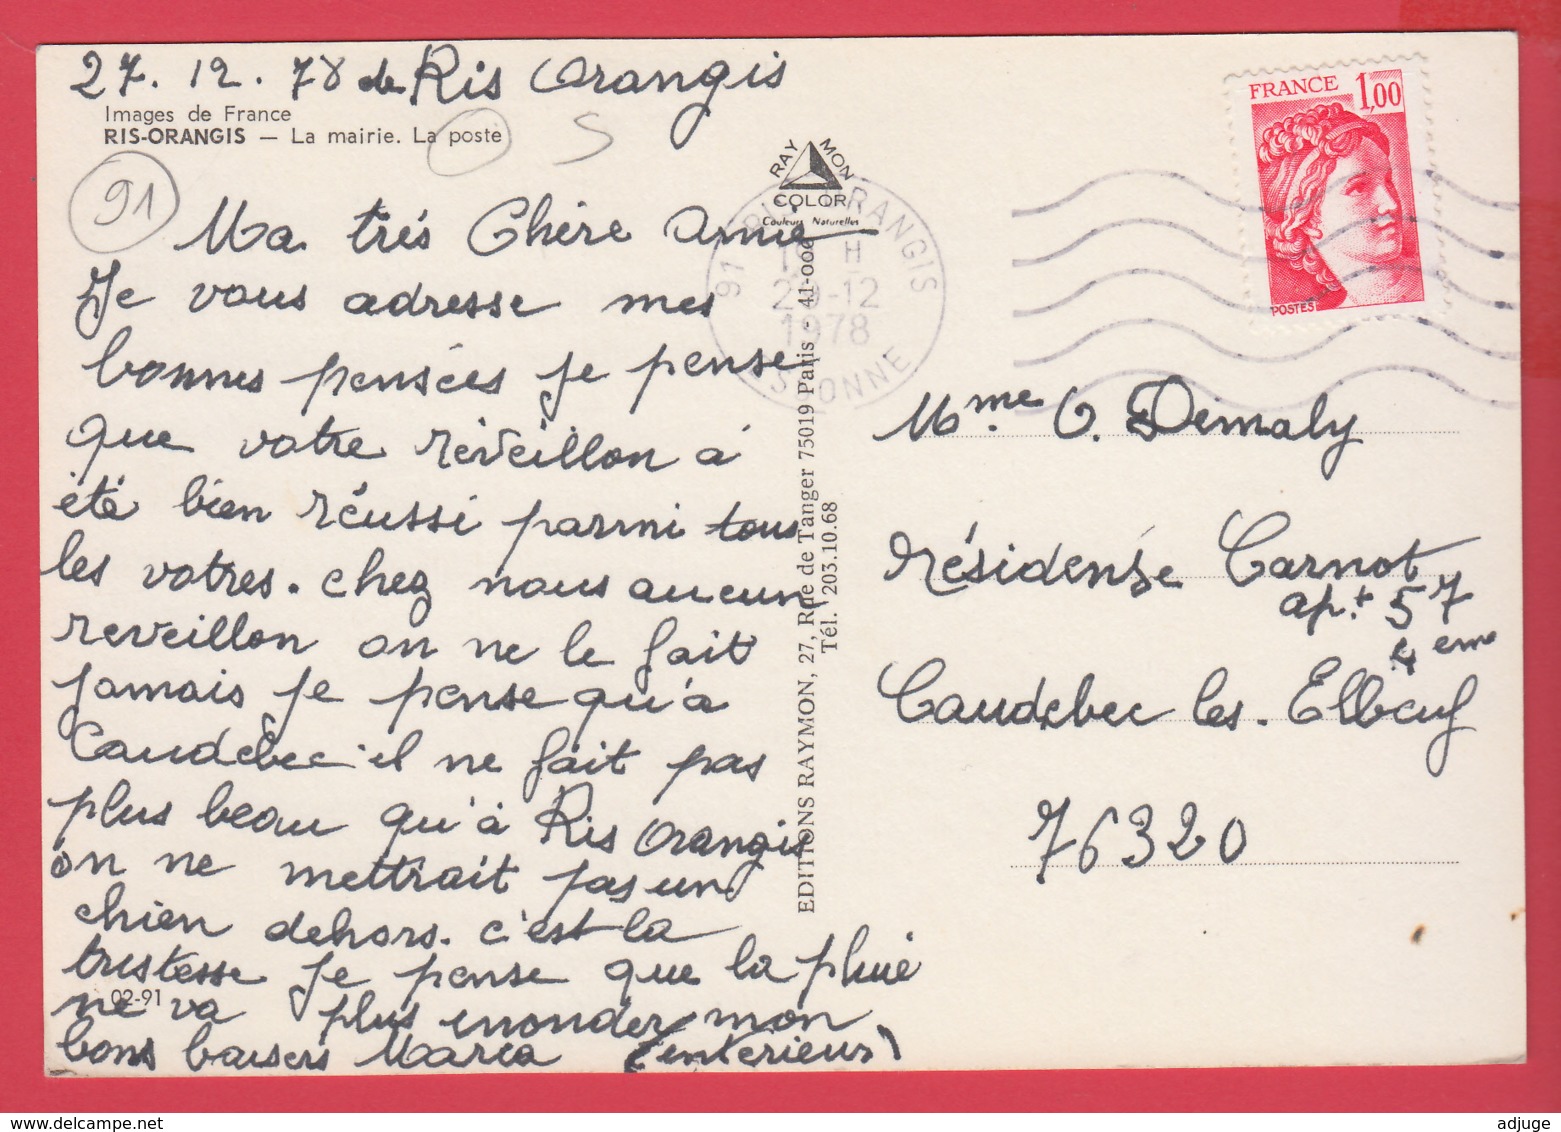 27.12.78 de Ris Orangis
Images de France
RIS-ORANGIS — La mairie. La poste
S
91
Ma très Chère Amie
Je vous adresse mes
bonnes pensées je pense
que votre réveillon á
été bien réussi parmi tous
les votres. chez nous aucun
reveillon on ne le fait
jamais je pense qu'à
Caudebec il ne fait pas
plus beau qu'à Ris Orangis
on ne mettrait pas un
chien dehors. c'est la
tristesse je pense que la pluie
ne va plus inonder mon
02-91
bons baisers Marca (interieur)
RAYMON
COLOR
Couleurs Naturelles
91 RIS ORANGIS
19 H
29-12
1978
ESSONNE
EDITIONS RAYMON, 27, Rue de Tanger 75019 Paris - 41-000
Tél. 203.10.68
FRANCE 1,00
POSTES
Mme O. Demaly
résidense Carnot
apt 57
4 eme
Caudebec les. Elbeuf
76320
adjuge